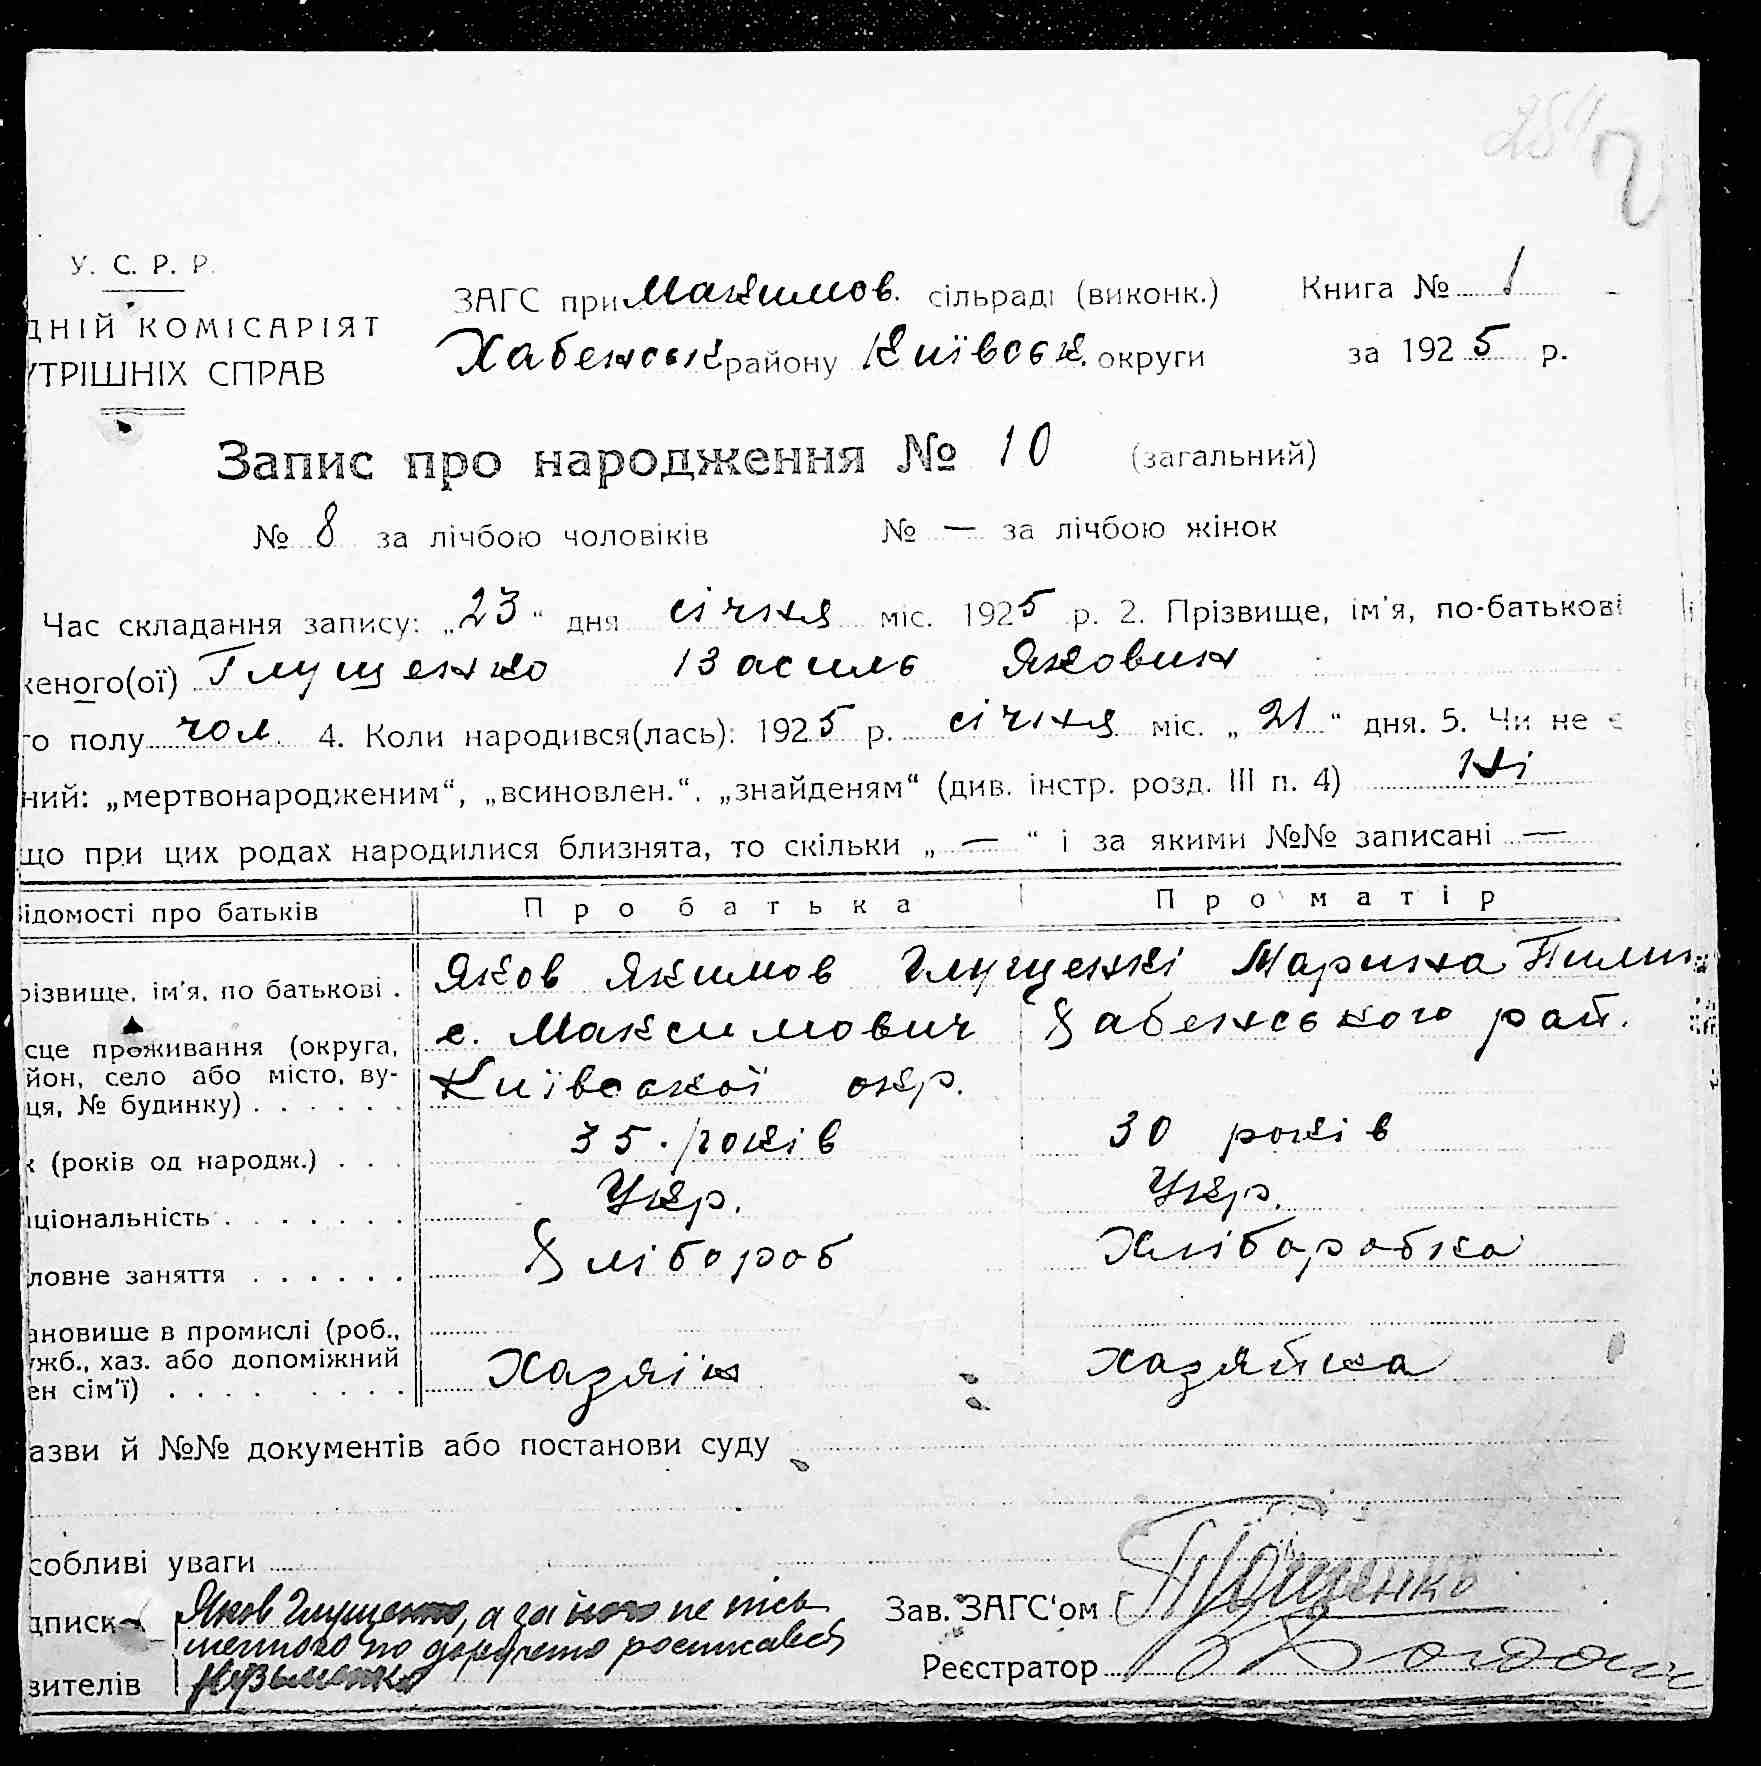 У. С. Р. Р.
ДНІЙ КОМІСАРІЯТ
УТРІШНІХ СПРАВ
ЗАГС при Максимов. сільраді (виконк.) Книга № 1
Хабенськ району Київськ. округи за 1925 р.
Запис про народження № 10 (загальний)
№ 8 за лічбою чоловіків № — за лічбою жінок
Час складання запису: „23“ дня січня міс. 1925 р. 2. Прізвище, ім'я, по-батькові
женого(ої) Глущенко Василь Яковин
го полу чол. 4. Коли народився(лась): 1925 р. січня міс. „21“ дня. 5. Чи не є
ний: „мертвонародженим“, „всиновлен.“, „знайденям“ (див. інстр. розд. III п. 4) Ні
що при цих родах народилися близнята, то скільки „ — “ і за якими №№ записані —
ідомості про батьків Про батька Про матір
різвище, ім'я, по батькові . Яков Якимов Глущенкі Марина Пилип
сце проживання (округа, с. Максимович Хабенського рай.
йон, село або місто, ву- Київської окр.
ця, № будинку) . . . . . .
к (років од народж.) . . . 35 . років 30 років
аціональність . . . . . . . Укр. Укр.
ловне заняття . . . . . . Хлібороб Хліборобка
ановище в промислі (роб.,
ужб., хаз. або допоміжний Хазяїн хазяйка
ен сім'ї) . . . . . . . .
азви й №№ документів або постанови суду
собливі уваги
дписи Яков Глущенко, а за його не пись
менного по доручению росписався
вителів Кузьменко
Зав. ЗАГС'ом
Реєстратор